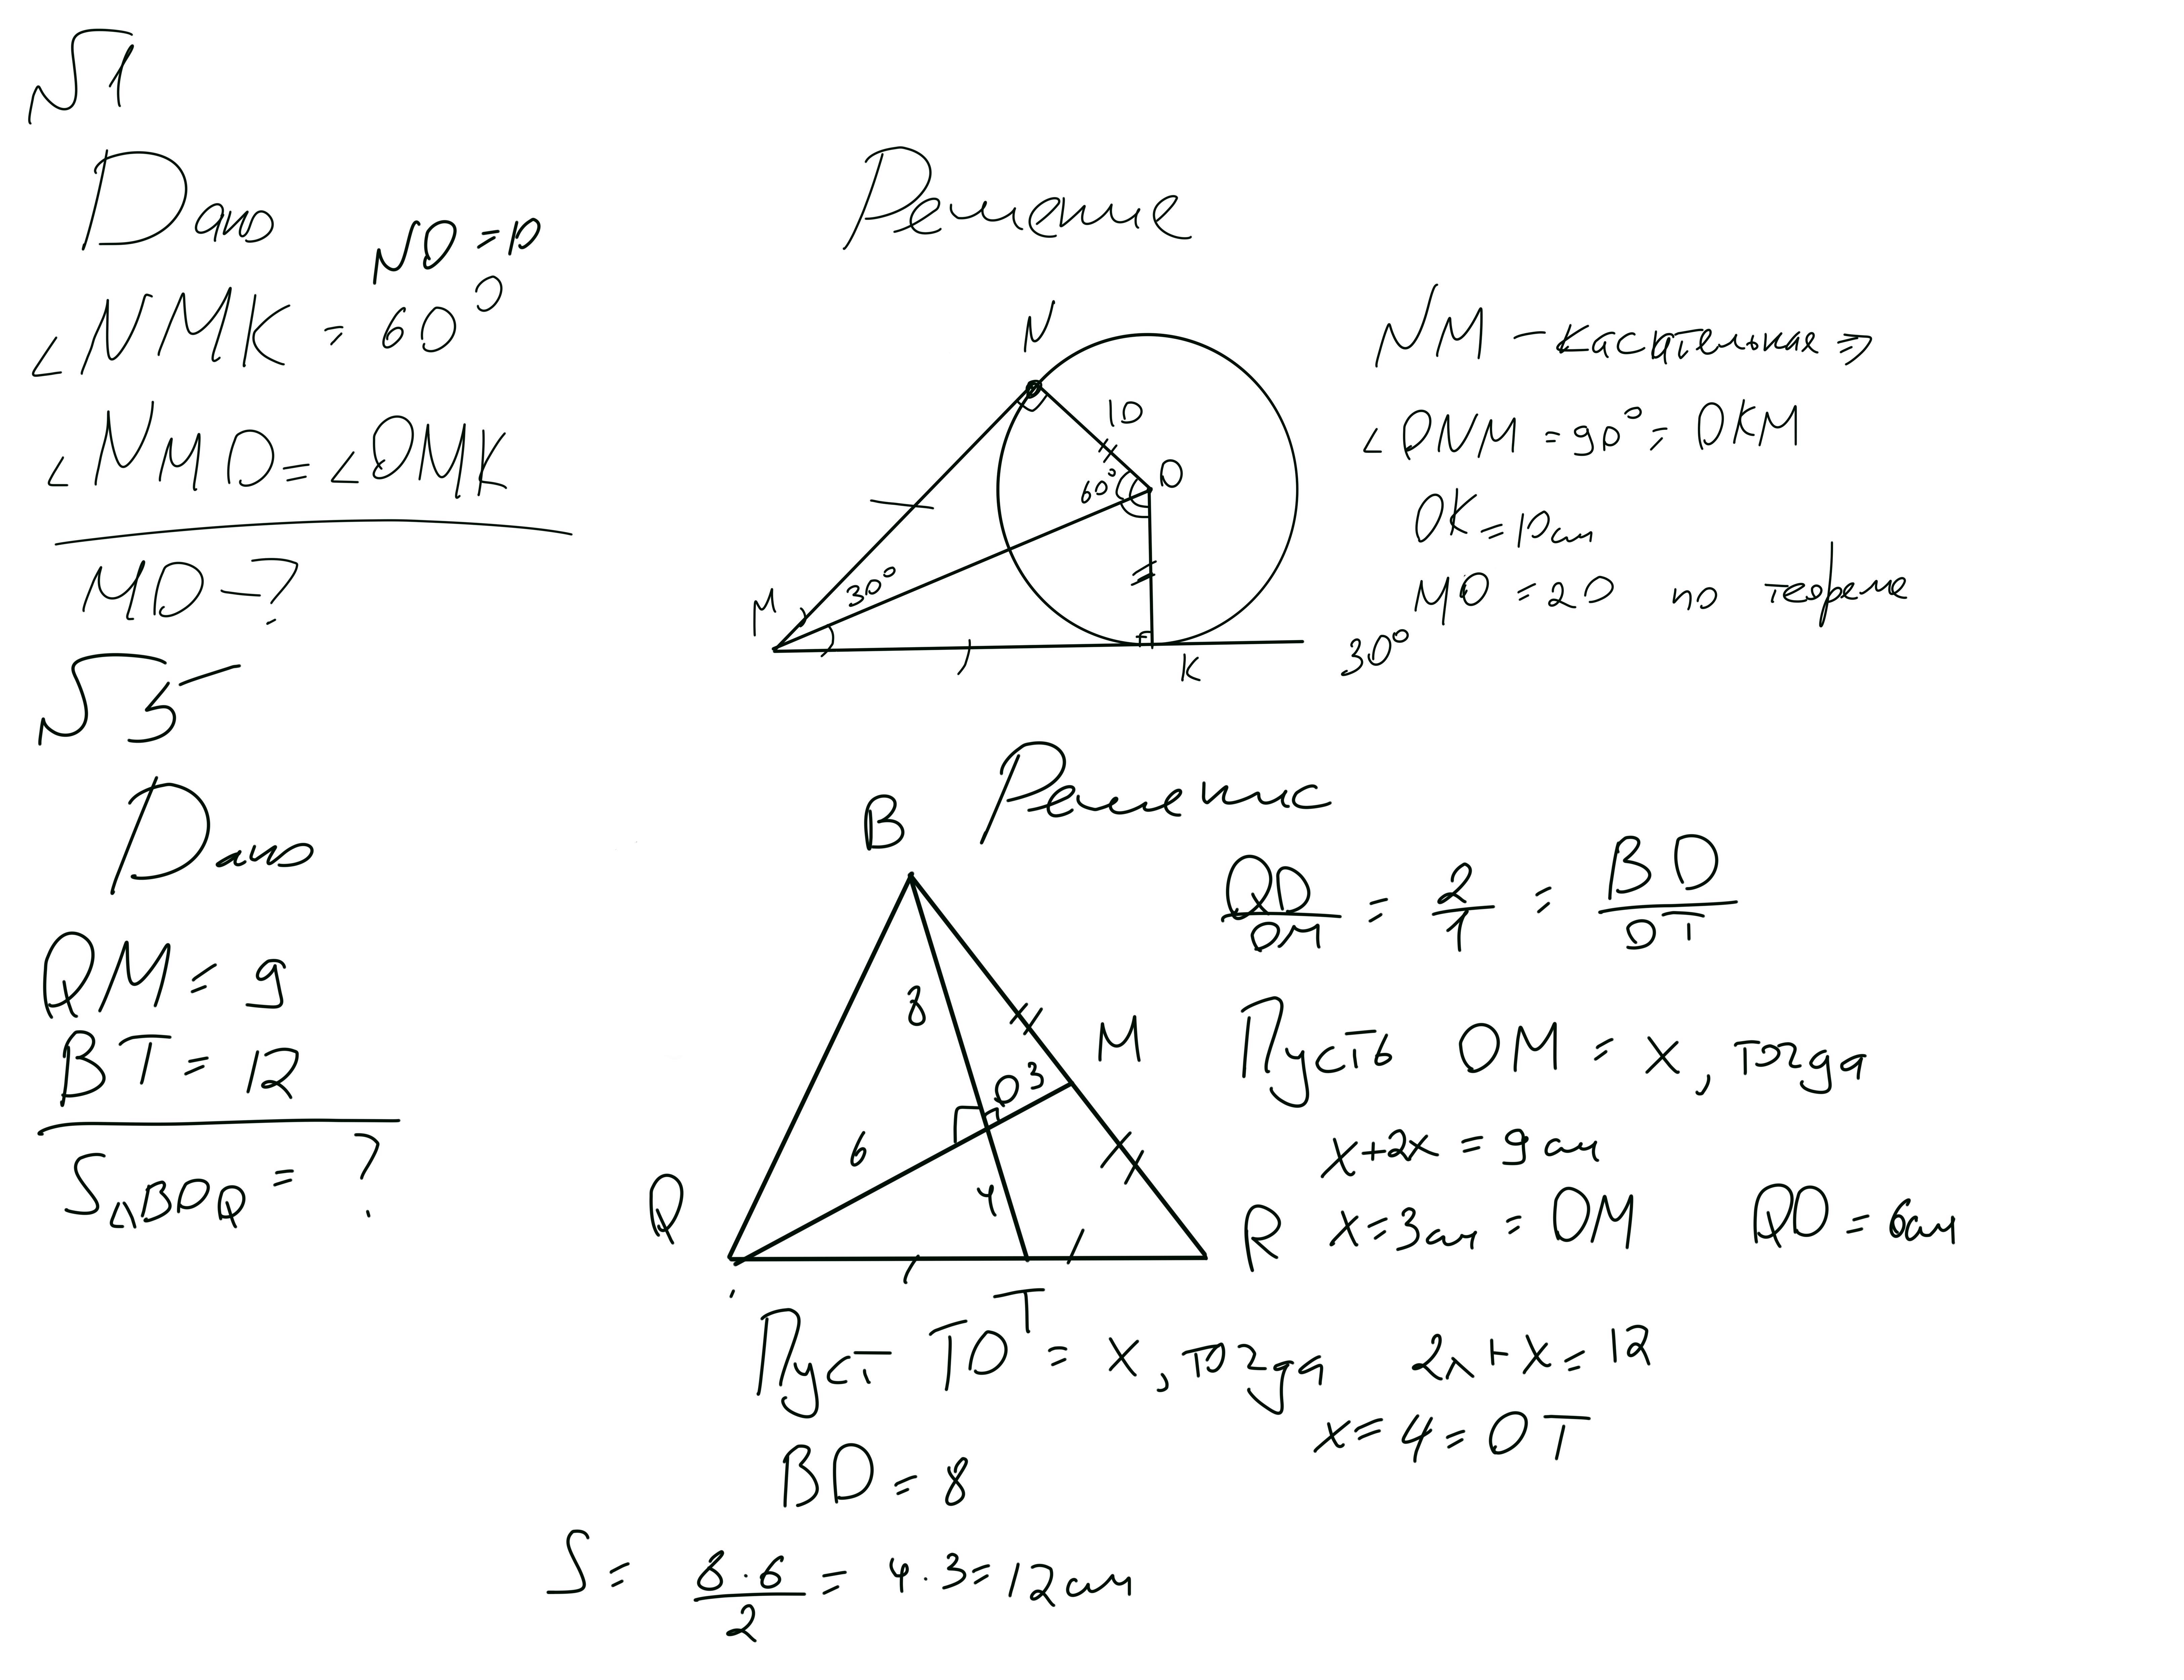 №1
Дано
NO = 10
∠NMK = 60°
∠NMO = ∠OMK
MO - ?
Решение
N
10
O
60°
30°
M
K
NM - касательная ⇒
∠ONM = 90° = OKM
OK = 10 см
MO = 20 по теореме
30°
№5
Дано
QM = 9
BT = 12
S△BOQ = ?
Решение
B
8
M
O 3
6
4
Q
R
T
QO/OM = 2/1 = BO/OT
Пусть OM = x, тогда
x + 2x = 9 см
x = 3 см = OM QO = 6 см
Пуст TO = x, тогда 2x + x = 12
x = 4 = OT
BO = 8
S = 8·6/2 = 4·3 = 12 см